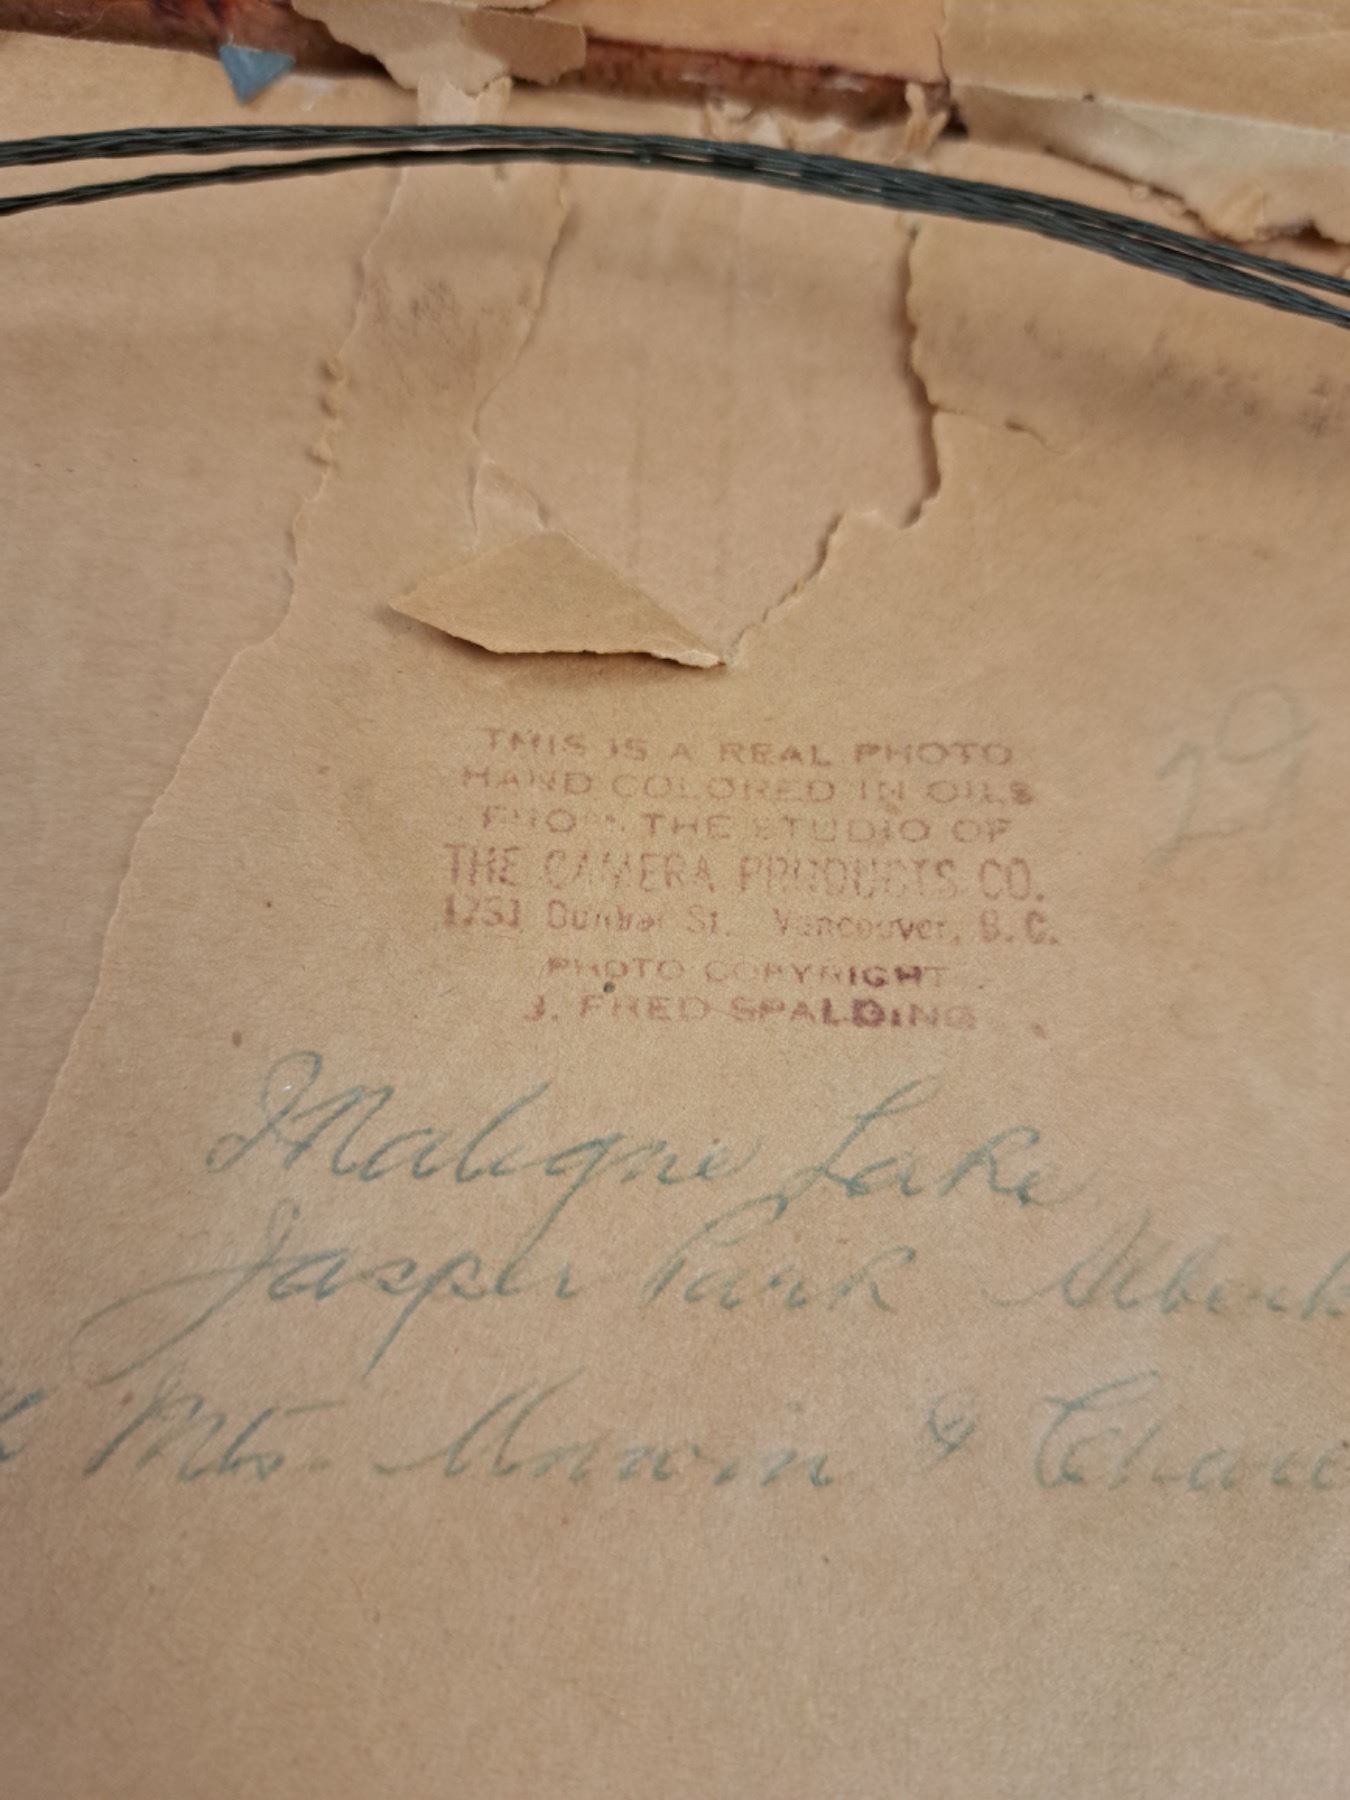 THIS IS A REAL PHOTO
HAND COLORED IN OILS
FROM THE STUDIO OF
THE CAMERA PRODUCTS CO.
Dunbar St. Vancouver, B.C.
PHOTO COPYRIGHT
J. FRED SPALDING
29
Maligne Lake
Jasper Park
Mts. Unwin &